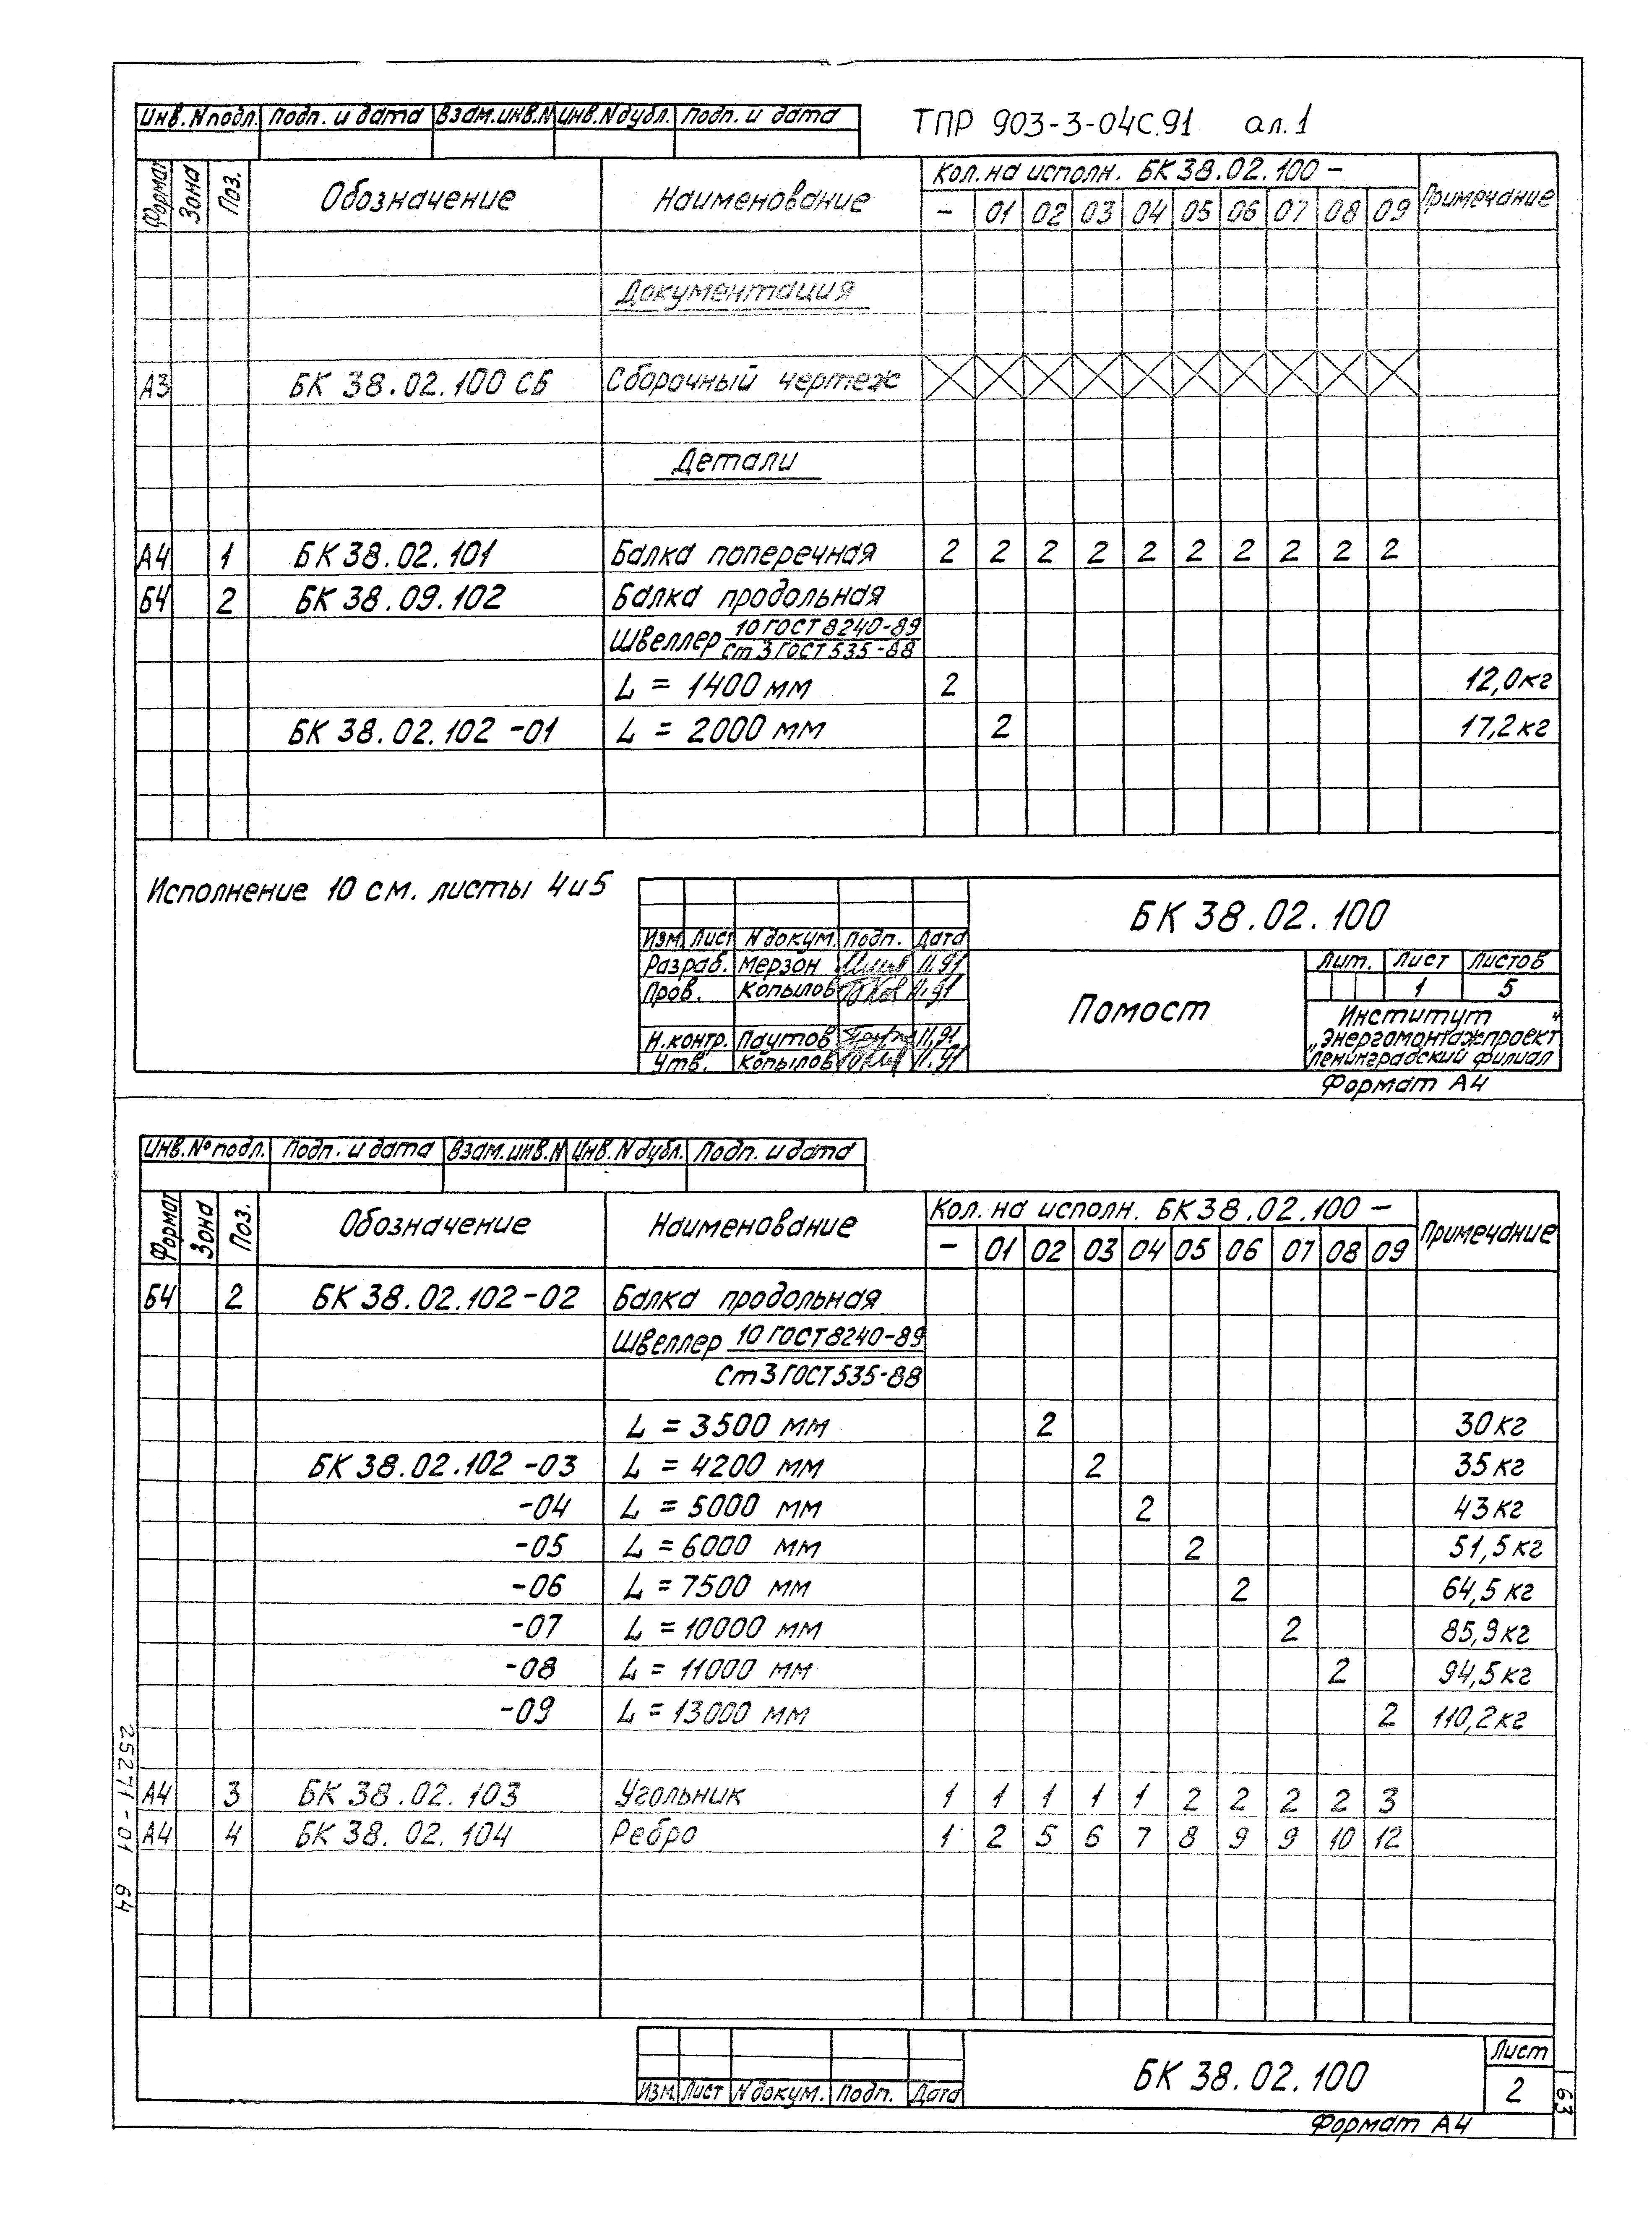 Инв. N подл. Подп. и дата Взам. инв. N Инв. N дубл. Подп. и дата
ТПР 903-3-04С.91 ал. 1
Формат Зона Поз. Обозначение Наименование Кол. на исполн. БК 38.02.100 – Примечание
– 01 02 03 04 05 06 07 08 09
Документация
А3 БК 38.02.100 СБ Сборочный чертеж
Детали
А4 1 БК 38.02.101 Балка поперечная 2 2 2 2 2 2 2 2 2 2
Б4 2 БК 38.09.102 Балка продольная
Швеллер 10 ГОСТ 8240-89
Ст 3 ГОСТ 535-88
L = 1400 мм 2 12,0 кг
БК 38.02.102 -01 L = 2000 мм 2 17,2 кг
Исполнение 10 см. листы 4 и 5
БК 38.02.100
Изм. Лист N докум. Подп. Дата
Разраб. Мерзон 11.91
Пров. Копылов 11.91
Н.контр. Паутов 11.91
Утв. Копылов 11.91
Помост
Лит. Лист Листов
1 5
Институт
„Энергомонтажпроект"
Ленинградский филиал
Формат А4
Инв. № подл. Подп. и дата Взам. инв. N Инв. N дубл. Подп. и дата
Формат Зона Поз. Обозначение Наименование Кол. на исполн. БК 38.02.100 – Примечание
– 01 02 03 04 05 06 07 08 09
Б4 2 БК 38.02.102-02 Балка продольная
Швеллер 10 ГОСТ 8240-89
Ст 3 ГОСТ 535-88
L = 3500 мм 2 30 кг
БК 38.02.102 -03 L = 4200 мм 2 35 кг
-04 L = 5000 мм 2 43 кг
-05 L = 6000 мм 2 51,5 кг
-06 L = 7500 мм 2 64,5 кг
-07 L = 10000 мм 2 85,9 кг
-08 L = 11000 мм 2 94,5 кг
-09 L = 13000 мм 2 110,2 кг
А4 3 БК 38.02.103 Угольник 1 1 1 1 1 2 2 2 2 3
А4 4 БК 38.02.104 Ребро 1 2 5 6 7 8 9 9 10 12
25271-01 64
Изм. Лист N докум. Подп. Дата
БК 38.02.100
Лист
2
63
Формат А4